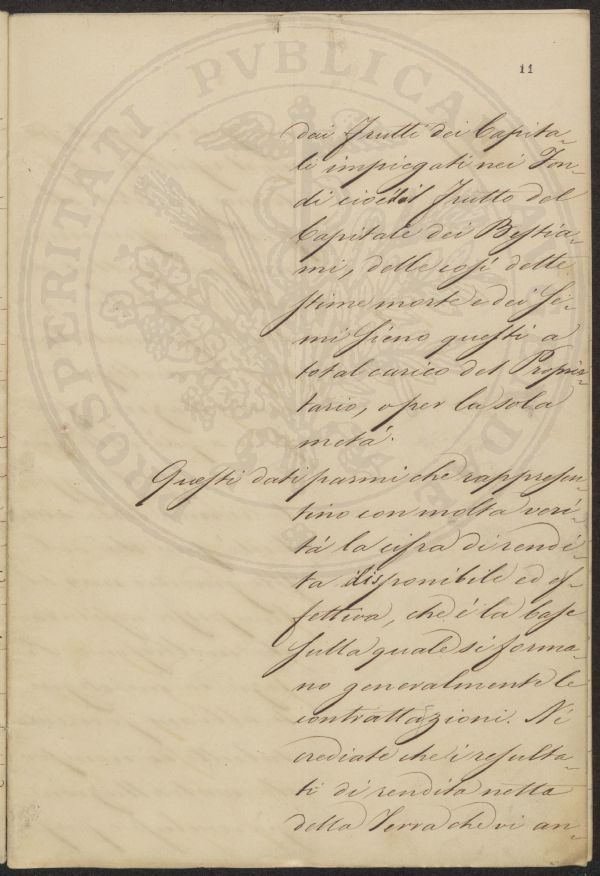 11
PROSPERITATI PVBLICAE
dai Frutti dei Capita-
li impiegati nei Fon-
di cioè il Frutto del
Capitale dei Bestia-
mi, delle così dette
stime morte e dei Se-
mi sieno questi a
total carico del Proprie-
tario, o per la sola
metà.
Questi dati parmi che rappresen-
tino con molta veri-
tà la cifra di rendi-
ta disponibile ed ef-
fettiva, che è la base
sulla quale si forma-
no generalmente le
contrattazioni. Nè
crediate che i resulta-
ti di rendita netta
della Terra che vi an-